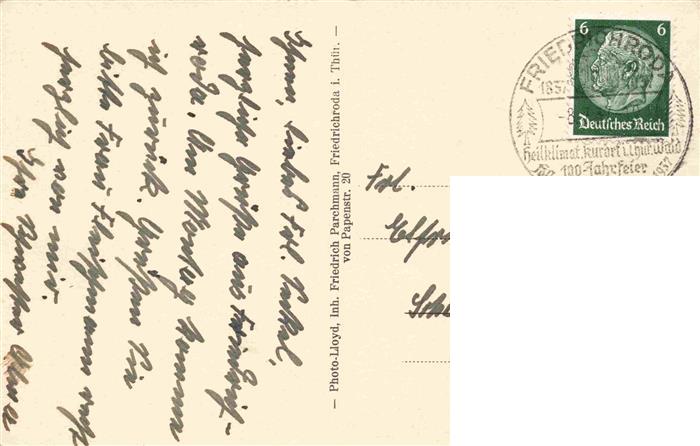 Ihnen, liebes Frl.
herzliche Grüße aus Friedrich-
roda. Am Montag komme
ich zurück. Grüßen Sie
bitte Frau
herzlich von mir
Ihre
— Photo-Lloyd, Inh. Friedrich Parchmann, Friedrichroda i. Thür. —
von Papenstr. 20
6 6
Deutsches Reich
FRIEDRICHRODA
1837
-8.
heilklimat. Kurort i. Thür. Wald
100-Jahrfeier
1937
Frl.